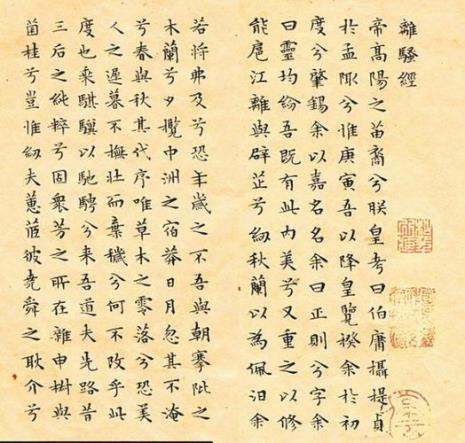 離騷經
帝高陽之苗裔兮朕皇考曰伯庸攝提貞
於孟陬兮惟庚寅吾以降皇覽揆余於初
度兮肇錫余以嘉名名余曰正則兮字余
曰靈均紛吾既有此內美兮又重之以修
能扈江離與辟芷兮紉秋蘭以為佩汩余
若將弗及兮恐年歲之不吾與朝搴阰之
木蘭兮夕攬中洲之宿莽日月忽其不淹
兮春與秋其代序唯草木之零落兮恐美
人之遲暮不撫壯而棄穢兮何不改乎此
度也乘騏驥以馳騁兮來吾道夫先路昔
三后之純粹兮固衆芳之所在雜申椒與
菌桂兮豈惟紉夫蕙茝彼堯舜之耿介兮